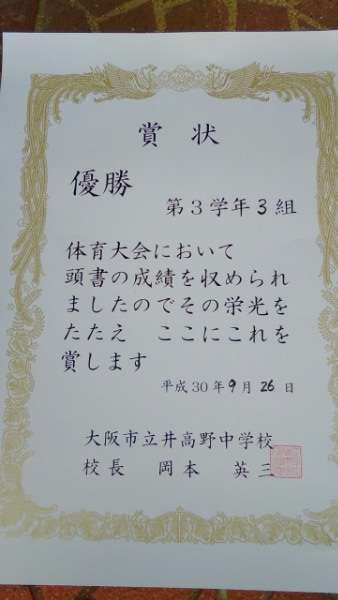 賞 状
優勝
第3学年3組
体育大会において
頭書の成績を収められ
ましたのでその栄光を
たたえ　ここにこれを
賞します
平成30年9月26日
大阪市立井高野中学校
校長　岡本　英三